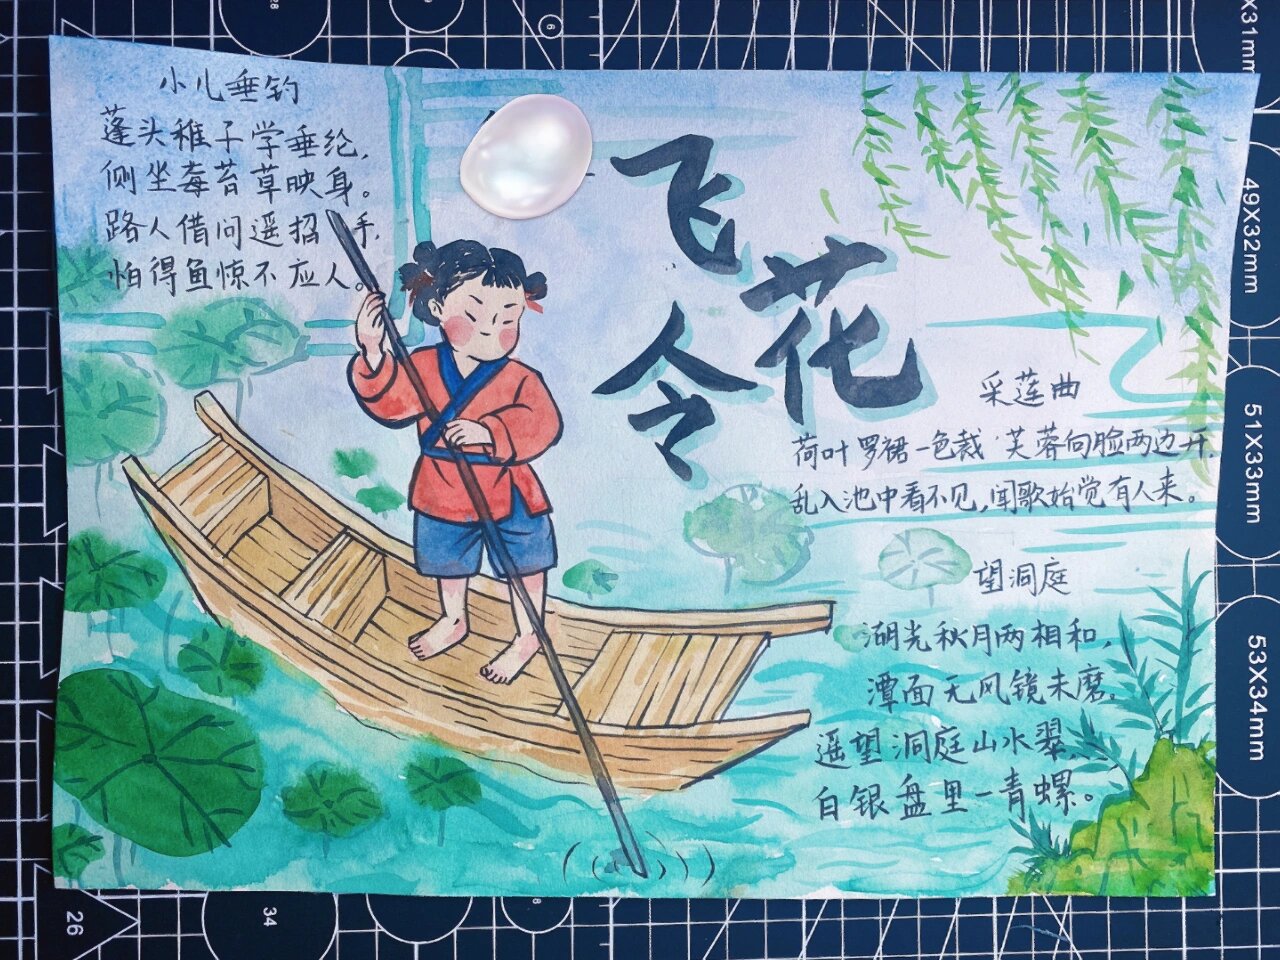 小儿垂钓
蓬头稚子学垂纶，
侧坐莓苔草映身。
路人借问遥招手，
怕得鱼惊不应人。
飞花令
采莲曲
荷叶罗裙一色裁，芙蓉向脸两边开，
乱入池中看不见，闻歌始觉有人来。
望洞庭
湖光秋月两相和，
潭面无风镜未磨。
遥望洞庭山水翠，
白银盘里一青螺。
49X32mm
51X33mm
53X34mm
26
34